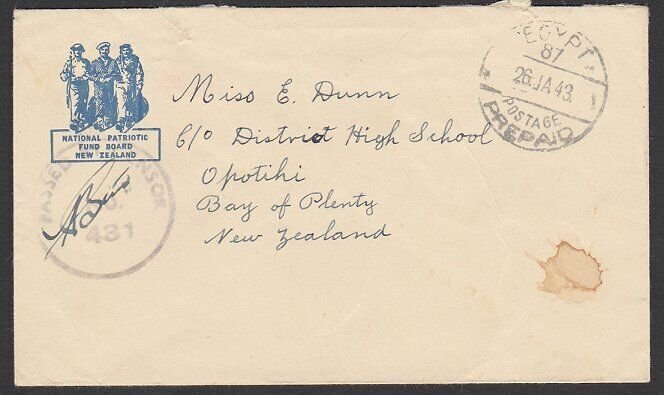 NATIONAL PATRIOTIC
FUND BOARD
NEW ZEALAND
EGYPT
87
26 JA 43
POSTAGE
PREPAID
Miss E. Dunn
c/o District High School
Opotihi
Bay of Plenty
New Zealand
PASSED CENSOR
431